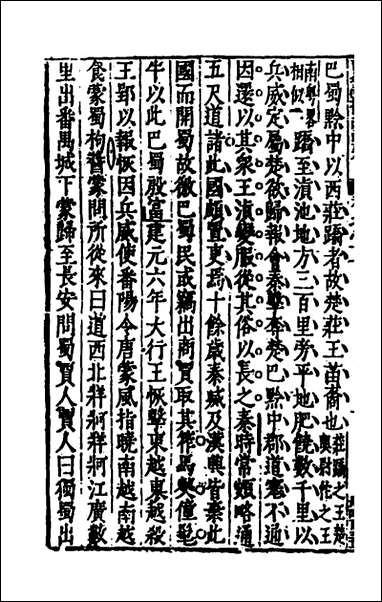 巴蜀黔中以西莊蹻者故楚莊王苗裔也莊蹻之王楚與尉佗之王
南粵畧相似蹻至滇池地方三百里旁平地肥饒數千里以
兵威定屬楚欲歸報會秦擊奪楚巴黔中郡道塞不通
因還以其衆王滇變服從其俗以長之秦時常頞略通
五尺道諸此國頗置吏焉十餘歲秦滅及漢興皆棄此
國而開蜀故徼巴蜀民或竊出商賈取其筰馬僰僮髦
牛以此巴蜀殷富建元六年大行王恢擊東越東越殺
王郢以報恢因兵威使番陽令唐蒙風指曉南越南越
食蒙蜀枸醬蒙問所從來曰道西北牂牁牂牁江廣數
里出番禺城下蒙歸至長安問蜀賈人賈人曰獨蜀出